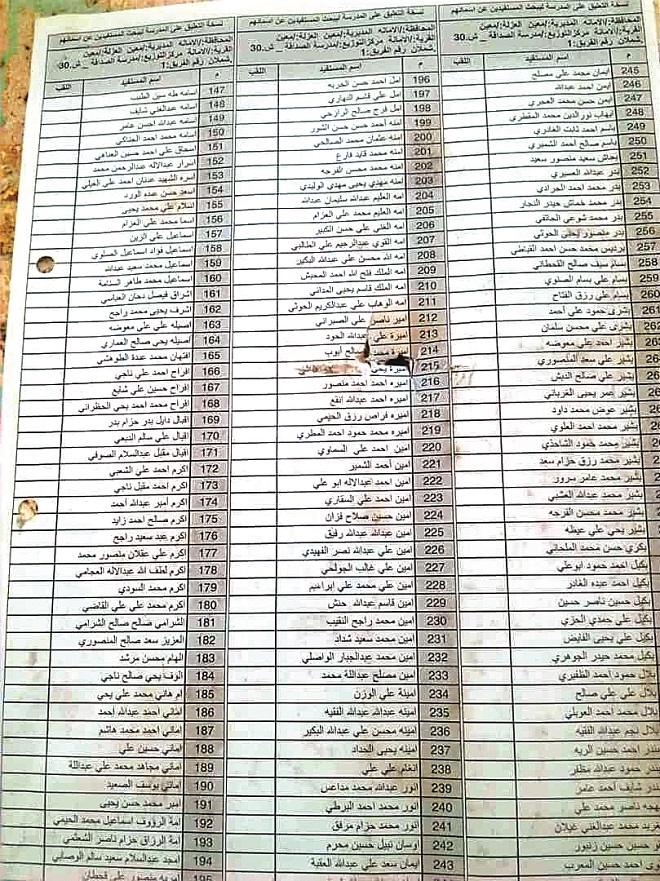 نسخة التعليق على المدرسة ليبحث المستفيدين عن اسمائهم
المحافظة:/الامانه المديرية:/معين العزلة:/معين
القرية:/الامانة مركز التوزيع:/مدرسة الصداقة _ ش.30
شملان رقم الفريق:1
م اسم المستفيد اللقب
147 اسامه طه سين الطنب
148 اسامه عبدالغني شايف
149 اسامه عبدالله احسن عامر
150 اسامه محمد احمد الجناكي
151 اسحاق علي احمد حسين العناهي
152 اسرار عبدالاله عبدالرحمن محمد
153 اسره الشهيد عدنان احمد علي العيلي
154 اسعد حسن عبده الورد
155 اسلام علي محمد يحيى
156 اسما محمد علي العزام
157 اسماعيل علي الزين
158 اسماعيل فواد اسماعيل الصلوي
159 اسماعيل محمد سعيد عبدالله
160 اسماعيل محمد طاهر السنامة
161 اشراق فيصل دحان العباسي
162 اشرف يحيى محمد راجح
163 اصيله علي علي معوضه
164 اصيله يحي صالح العماري
165 افتهان محمد عبدة الطوقشي
166 افراح احمد علي ناجي
167 افراح حسين علي شايع
168 افراح محمد احمد يحي الحظراني
169 اقبال دايل بدر حزام بدر
170 اقبال علي سالم النبعي
171 اقبال مقبل عبدالسلام الصوفي
172 اكرم احمد علي الشعبي
173 اكرم احمد مقبل ناجي
174 اكرم أمير عبدالله أحمد
175 اكرم صالح احمد زايد
176 اكرم عبد سعيد راجح
177 اكرم علي عقلان منصور محمد
178 اكرم لطف الله عبدالاله العجامي
179 اكرم محمد السودي
180 اكرم محمد علي علي القاضي
181 الشرامي صالح صالح الشرامي
182 العزيز سعد صالح المنصوري
183 الهام محسن مرشد
184 الوف يحي صالح ناجي
185 ام هاني محمد علي يحي
186 اماني احمد عبدالله احمد
187 اماني احمد محمد هاشم
188 اماني حسين علي
189 اماني مجاهد محمد علي عبداللة
190 اماني يوسف الصعيد
191 امبر محمد حسن يحيى
192 امة الرؤوف اسماعيل محمد الحيمي
193 امة الرزاق حزام ناصر الشعثمي
194 امجد عبدالسلام سعيد سالم الوصابي
195 امريه منصور علي قحطان
نسخة التعليق على المدرسة ليبحث المستفيدين عن اسمائهم
المحافظة:/الامانه المديرية:/معين العزلة:/معين
القرية:/الامانة مركز التوزيع:/مدرسة الصداقة _ ش.30
شملان رقم الفريق:1
م اسم المستفيد اللقب
196 امل احمد حسن الحربه
197 امل علي قاسم النهاري
198 امل فرج صالح الرازحي
199 امنه أحمد حسن حسن الشور
200 امنه عثمان محمد الصالحي
201 امنه محمد قايد فارع
202 امنه محمد محسن الفرجه
203 امنه مهدي يحيى مهدي الوليدي
204 امه العليم عبدالله سليمان عبدالله
205 امه العليم محمد علي العزام
206 امه الغني علي حسن الكبير
207 امه القوي عبدالرحيم علي الطالبي
208 امه الله محسن علي عبدالله البكير
209 امه الملك فلح الله احمد المحبش
210 امه الملك قاسم يحيى المداني
211 امه الوهاب علي عبدالكريم الحوثي
212 امير ناصر علي الصبراني
213 اميرة علي عبدالله الحود
214 اميرة محمد صالح أيوب
215 اميرة يحي
216 اميره احمد احمد منصور
217 اميره احمد عبدالله انفع
218 اميره فراص رزق الحيمي
219 اميره محمد حمود احمد المطري
220 امين احمد علي السماوي
221 امين أحمد الشمير
222 امين احمد عبدالاله ابو علي
223 امين احمد علي السقاري
224 امين حسين صلاح فزان
225 امين عبدالله عبدالله رفيق
226 امين علي عبدالله نصر الفهيدي
227 امين علي غالب الجولحي
228 امين علي محمد علي ابراهيم
229 امين قاسم عبدالله حنش
230 امين محمد راجح النقيب
231 امين محمد سعيد شداد
232 امين محمد عبدالجبار الواصلي
233 امين مصلح عبداللة محمد
234 امينة علي الوزن
235 امينه عبدالله عبدالله الفقيه
236 امينه محسن علي عبدالله البكير
237 امينه يحيى الحداد
238 انغام علي علي
239 انور عبدالله محمد مداعس
240 انور محمد احمد البرطي
241 انور محمد حزام مرفق
242 اوسان نبيل حسين محرم
243 ايمان سعد علي عبدالله العقبة
نسخة التعليق على المدرسة ليبحث المستفيدين عن اسمائهم
المحافظة:/الامانه المديرية:/معين العزلة:/معين
القرية:/الامانة مركز التوزيع:/مدرسة الصداقة _ ش.30
شملان رقم الفريق:1
م اسم المستفيد
245 ايمان محمد علي مصلح
246 ايمن احمد عبدالله
247 ايمن حسن محمد العمري
248 ايهاب نورالدين محمد المقطري
249 باسم احمد ثابت الغادري
250 باسم صالح أحمد الشميري
251 بجاش سعيد منصور سعيد
252 بدر عبدالله العسيري
253 بدر محمد احمد الجرادي
254 بدر محمد خماش حيدر النجار
255 بدر محمد شوعي الحاتقي
256 بدر منصور يحيى الحوثي
257 برديس محمد حسن احمد القباطي
258 بسام سيف صالح القحطاني
259 بسام علي صالح الصلوي
260 بسام علي رزق الفتاح
بشرى حمود علي أحمد
بشرى علي محسن سلمان
بشير احمد علي معوضه
بشير علي سعد المنصوري
بشير علي صالح الدبش
بشير عمر يحيى الغرباني
بشير عوض محمد داود
بشير محمد أحمد العلوي
بشير محمد حمود الشاحذي
بشير محمد رزق حزام سعد
بشير محمد عامر سرور
بشير محمد عبدالله العشبي
بشير محمد محسن الفرجه
بشير يحي علي عيظه
بكري حسن محمد الملحاني
بكيل احمد حمود ابوعلي
بكيل احمد عبده الغادر
بكيل حسين ناصر حسين
بكيل علي حمدي الحزي
بكيل علي يحيى الفايض
بكيل محمد حيدر الجوهري
بلال حمود أحمد الظفيري
بلال علي علي صالح
بلال محمد أحمد العوبلي
بلال نجم عبدالله الفقيه
بندر احمد حسين الريه
بندر حمود عبدالله مظفر
بندر شايف أحمد عامر
بهجه ناصر محمد علي
محمد عبدالغني غيلان
حسين حسين زنبور
احمد حسين المعرب